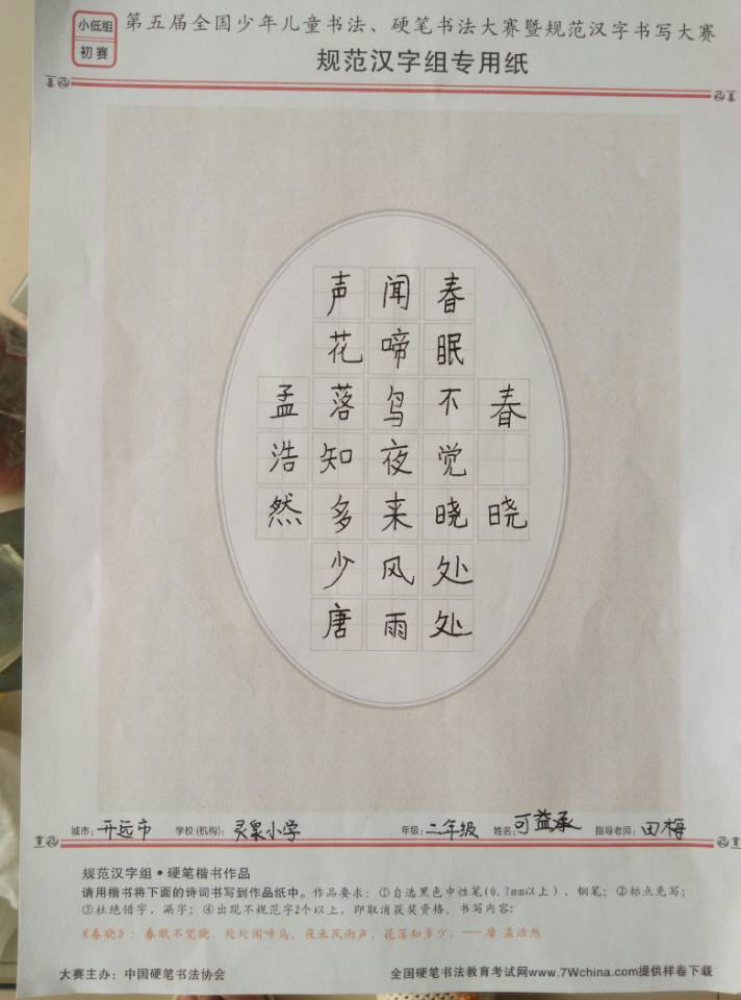 小低组
初赛
第五届全国少年儿童书法、硬笔书法大赛暨规范汉字书写大赛
规范汉字组专用纸
春晓
春眠不觉晓处处
闻啼鸟夜来风雨
声花落知多少唐
孟浩然
城市:开远市 学校(机构):灵泉小学 年级:二年级 姓名:可益承 指导老师:田梅
规范汉字组•硬笔楷书作品
请用楷书将下面的诗词书写到作品纸中。作品要求:①自选黑色中性笔(0.7mm以上)、钢笔;②标点免写;
③杜绝错字,漏字;④出现不规范字2个以上,即取消获奖资格。书写内容:
《春晓》:春眠不觉晓,处处闻啼鸟。夜来风雨声,花落知多少。——唐 孟浩然
大赛主办:中国硬笔书法协会 全国硬笔书法教育考试网www.7Wchina.com提供样卷下载